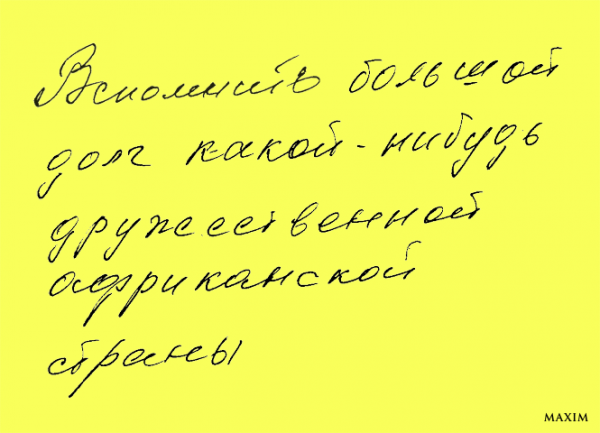 Вспомнить большой
долг какой-нибудь
дружественной
африканской
страны
MAXIM